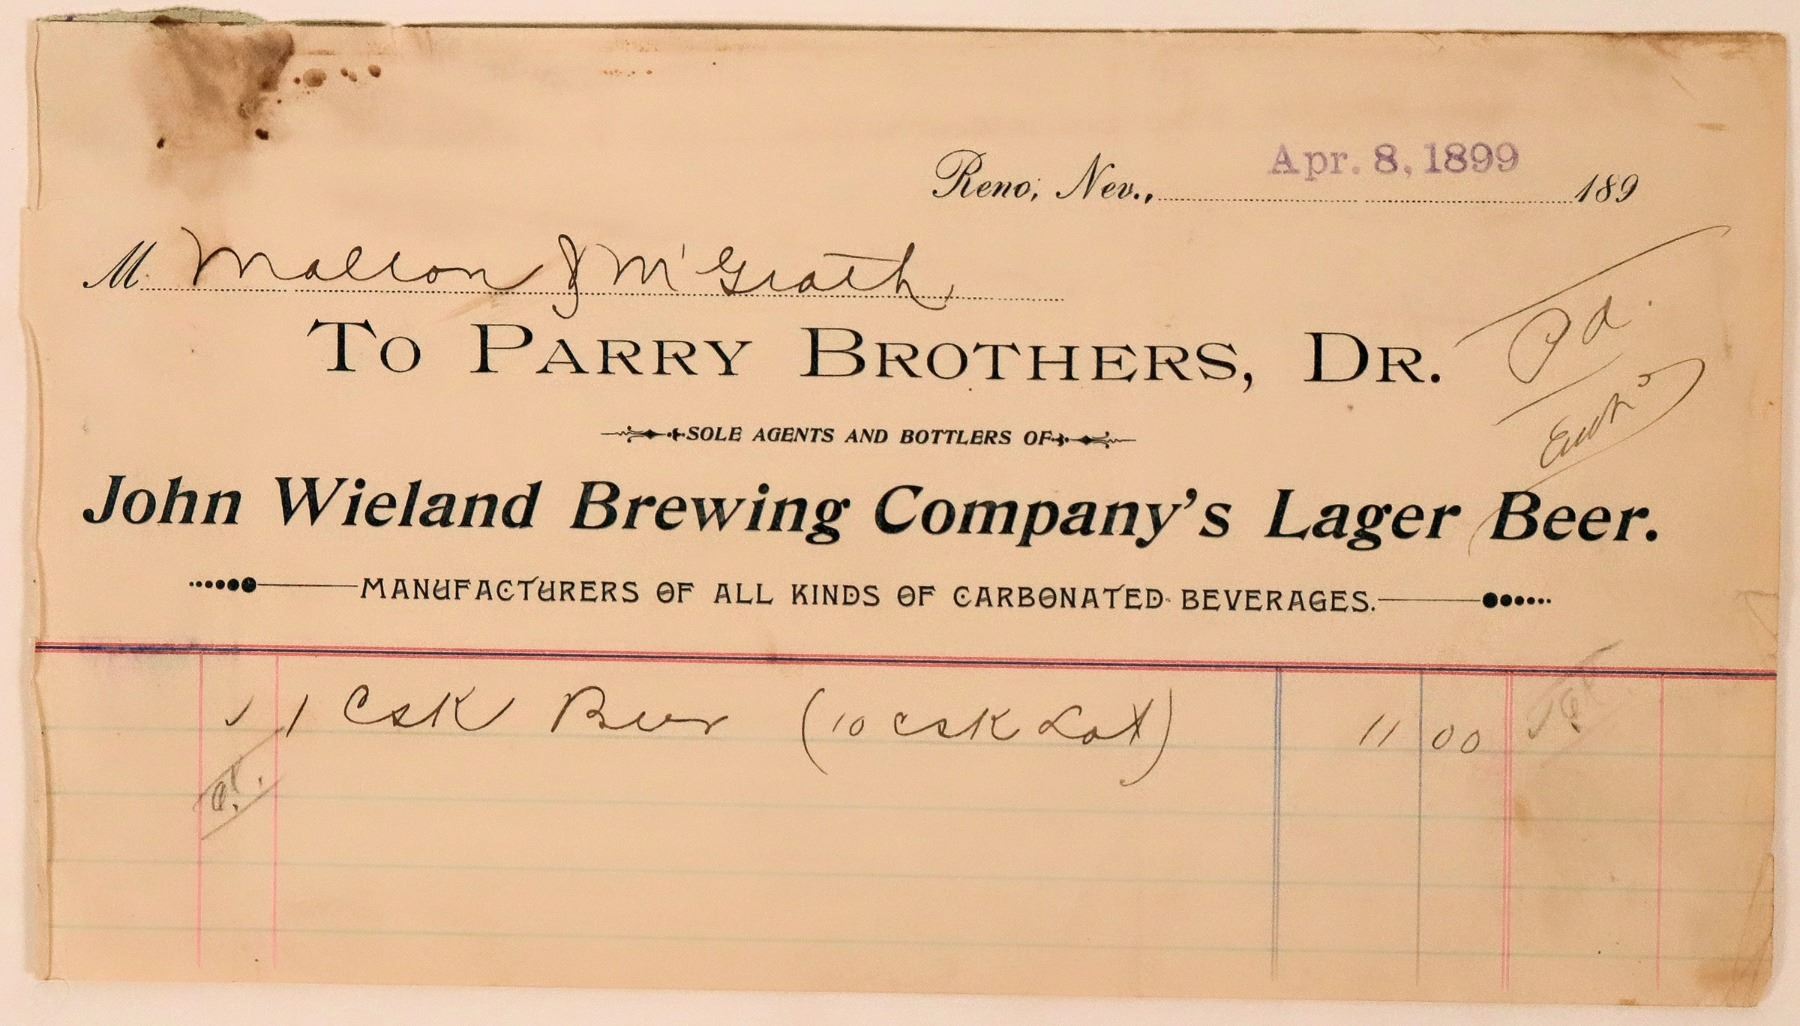 Apr. 8, 1899
Reno, Nev., 189
M. Mallon & M'Grath,
To Parry Brothers, Dr.
Pd.
SOLE AGENTS AND BOTTLERS OF
John Wieland Brewing Company's Lager Beer.
MANUFACTURERS OF ALL KINDS OF CARBONATED BEVERAGES.
1 Csk Beer (10 csk Lot) 11 00